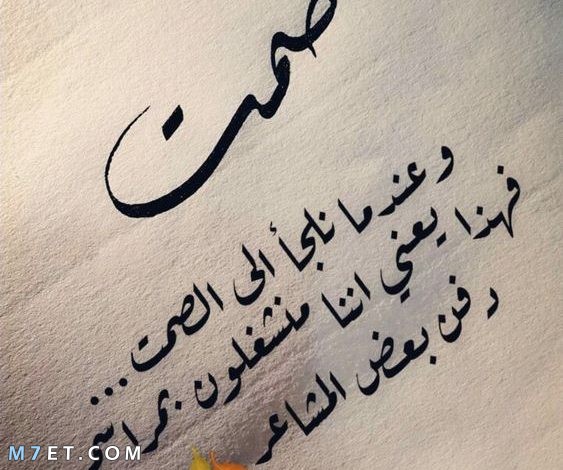 صمت
و عندما نلجأ الى الصمت...
فهذا يعني اننا منشغلون بمراسم
دفن بعض المشاعر
M7ET.COM